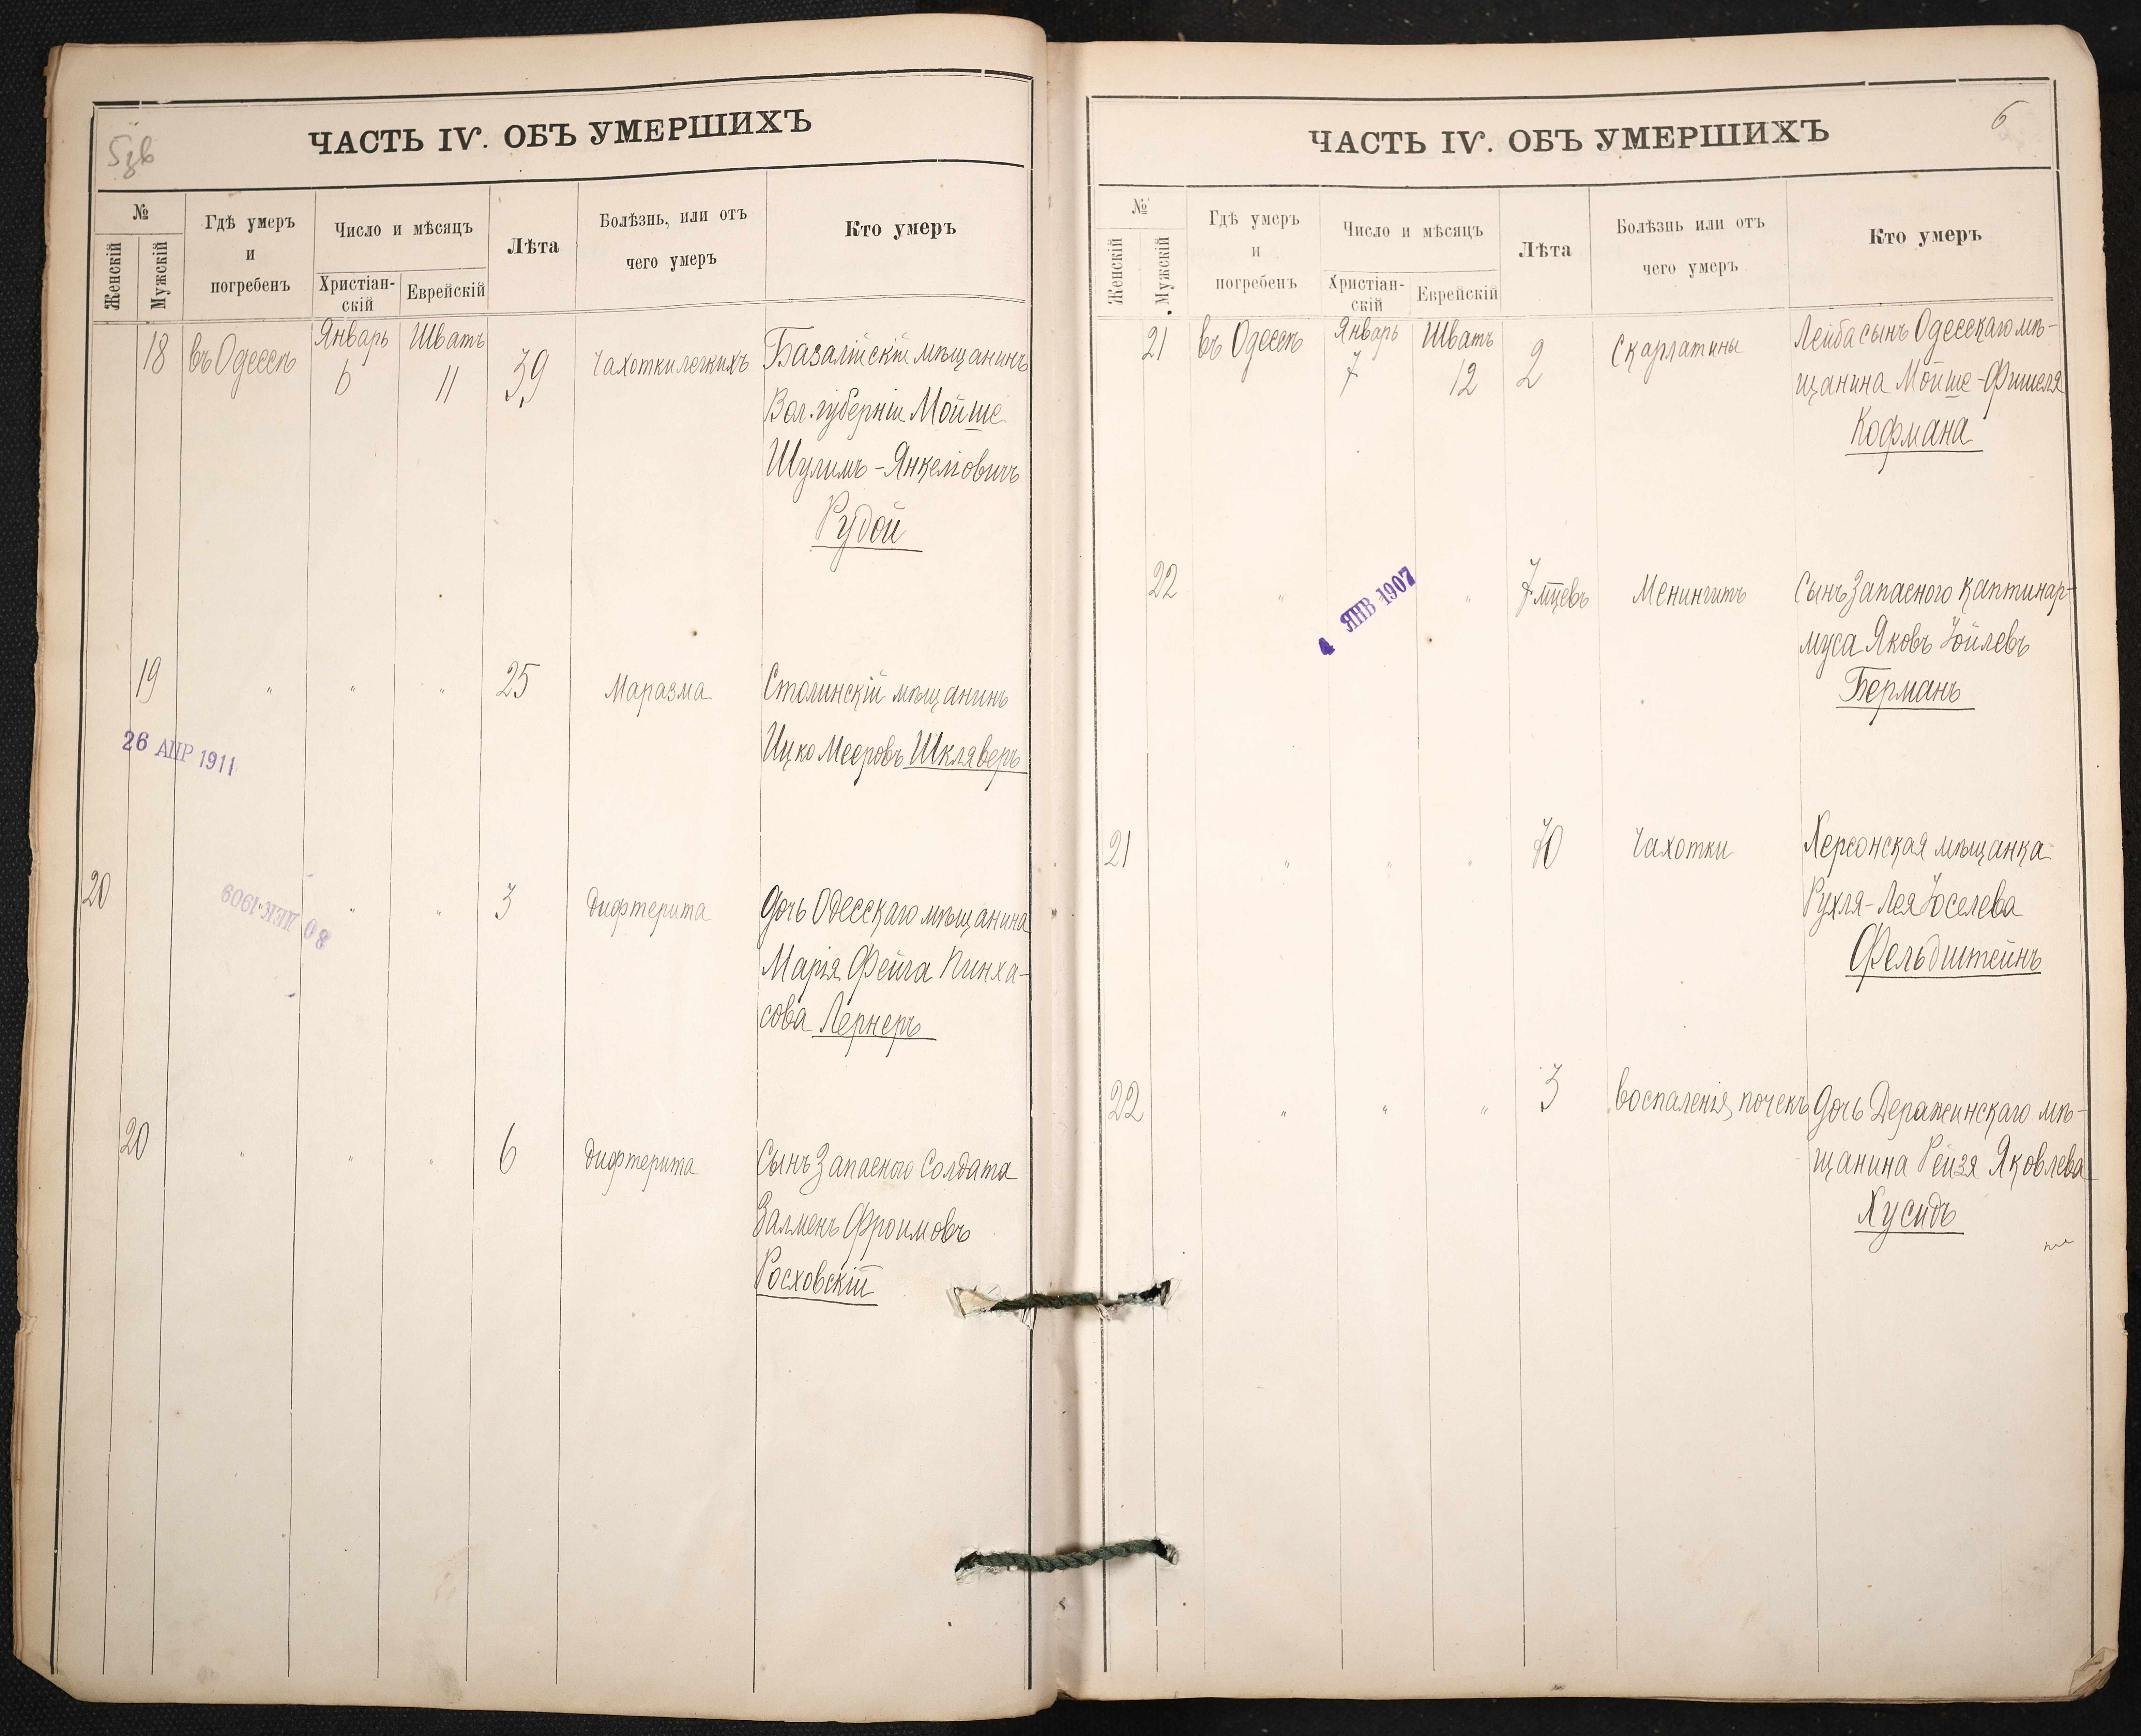 5 зв
ЧАСТЬ IV. ОБЪ УМЕРШИХЪ
№
Женскій
Мужскій
Гдѣ умеръ
и
погребенъ
Число и мѣсяцъ
Христіан-
скій
Еврейскій
Лѣта
Болѣзнь, или отъ
чего умеръ
Кто умеръ
18 въ Одессѣ Январь 6 Шватъ 11 39 Чахотки легкихъ Базалійскій мѣщанинъ
Вол. губерніи Мойше
Шулимъ-Янкелiовичъ
Рудой
19 " " " 25 Маразма Столинскій мѣщанинъ
Ицко Мееровъ Шкляверъ
26 АПР 1911
20 " " " 3 дифтерита Дочь Одесскаго мѣщанина
30 ДЕК 1909
Марія Фейга Пинха-
сова Лернеръ
20 " " " 6 дифтерита Сынъ Запасного Солдата
Залменъ Фроимовъ
Росховскій
6
ЧАСТЬ IV. ОБЪ УМЕРШИХЪ
№
Женскій
Мужскій
Гдѣ умеръ
и
погребенъ
Число и мѣсяцъ
Христіан-
скій
Еврейскій
Лѣта
Болѣзнь или отъ
чего умеръ
Кто умеръ
21 въ Одессѣ Январь 7 Шватъ 12 2 Скарлатины Лейба сынъ Одесскаго мѣ-
щанина Мойше-Фишеля
Кофмана
22 " " " 7 мцевъ Менингитъ Сынъ Запасного Каптинар-
4 ЯНВ 1907
муса Яковъ Юйлевъ
Берманъ
21 " " " 70 Чахотки Херсонская мѣщанка
Рухля-Лея Юселева
Фельдштейнъ
22 " " " 3 воспаленія почекъ Дочь Деражинскаго мѣ-
щанина Рейзя Яковлева
Хусидъ